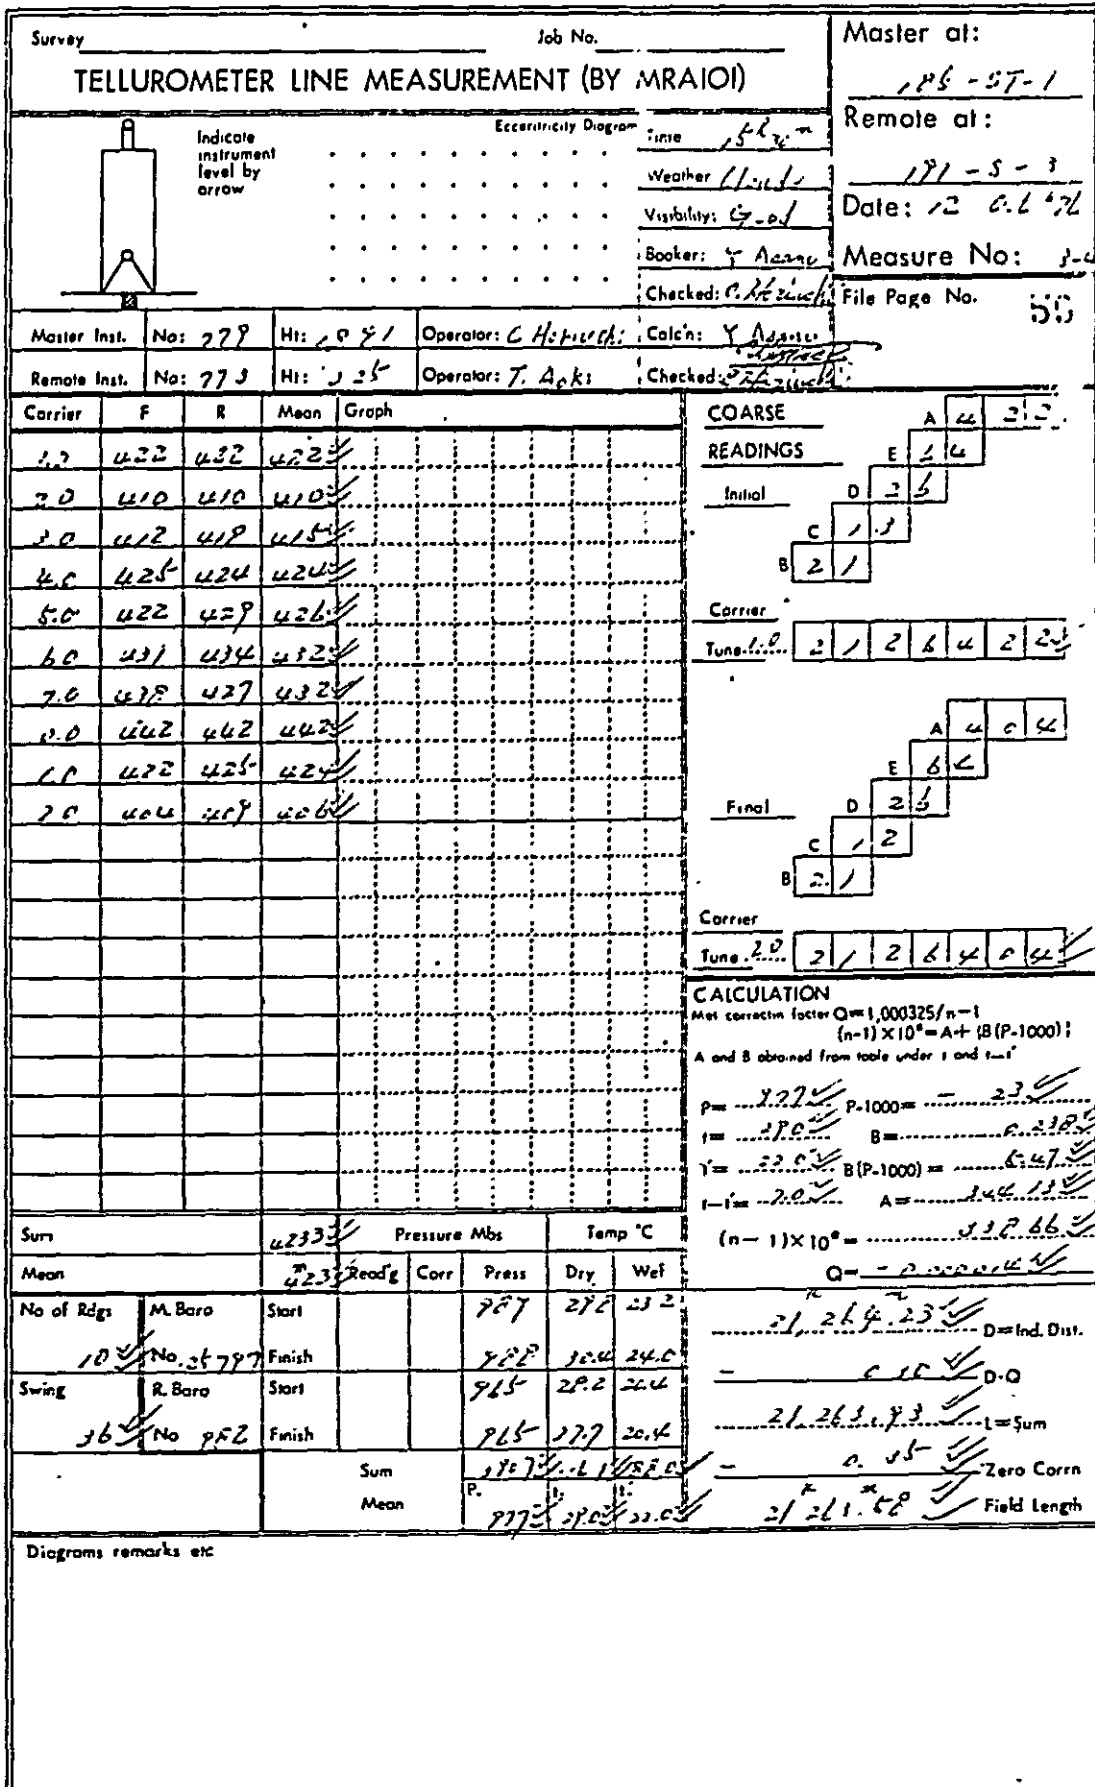 Survey Job No.
TELLUROMETER LINE MEASUREMENT (BY MRA101)
Master at:
185 - ST - 1
Remote at:
191 - S - 3
Date: 12
Measure No: 3-4
File Page No. 50
Indicate instrument level by arrow
Eccentricity Diagram
Time
Weather
Visibility: Good
Booker:
Checked:
Master Inst. No: 779 Ht: Operator: C Calc'n: Y
Remote Inst. No: 773 Ht: Operator: T. Aoki Checked:
Carrier F R Mean Graph
422 422 422
2.0 410 410 410
3.0 412 419 415
4.0 425 424 424
5.0 422 429 426
6.0 431 434 432
7.0 438 427 432
8.0 442 442 442
1.0 422 425 424
2.0 404 409 406
COARSE READINGS
Initial
A 4 2 2
E 4
D 2 6
C 1 3
B 2 1
Carrier
Tune 1.0 2 1 2 6 4 2 2
Final
A 4 0 4
E 6 4
D 2 6
C 1 2
B 2 1
Carrier
Tune 2.0 2 1 2 6 4 0 4
CALCULATION
Met correctn factor Q=1,000325/n-1
(n-1)×10⁶=A+{B(P-1000)}
A and B obtained from table under t and t-t'
P= 977 P-1000= - 23
t= 29.0 B=
t'= 22.0 B(P-1000) =
t-t'= 7.0 A= 344.13
(n-1)×10⁶= 338.66
Q=
21,264.23 D=Ind. Dist.
- 0.30 D·Q
21,263.93 L=Sum
- 0.35 Zero Corrn
21,263.58 Field Length
Sum 4233 Pressure Mbs Temp °C
Mean 423 Read'g Corr Press Dry Wet
No of Rdgs M. Baro Start 989 23.2
10 No. 25797 Finish 988 30.4 24.0
Swing R. Baro Start 965 28.2
36 No 982 Finish 965 27.7 20.4
Sum 88.0
Mean P. 977 t. 29.0 t'. 22.0
Diagrams remarks etc